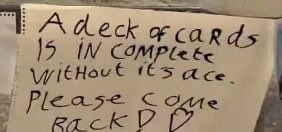 A deck of cards
is in complete
without its ace.
Please come
back! ♡